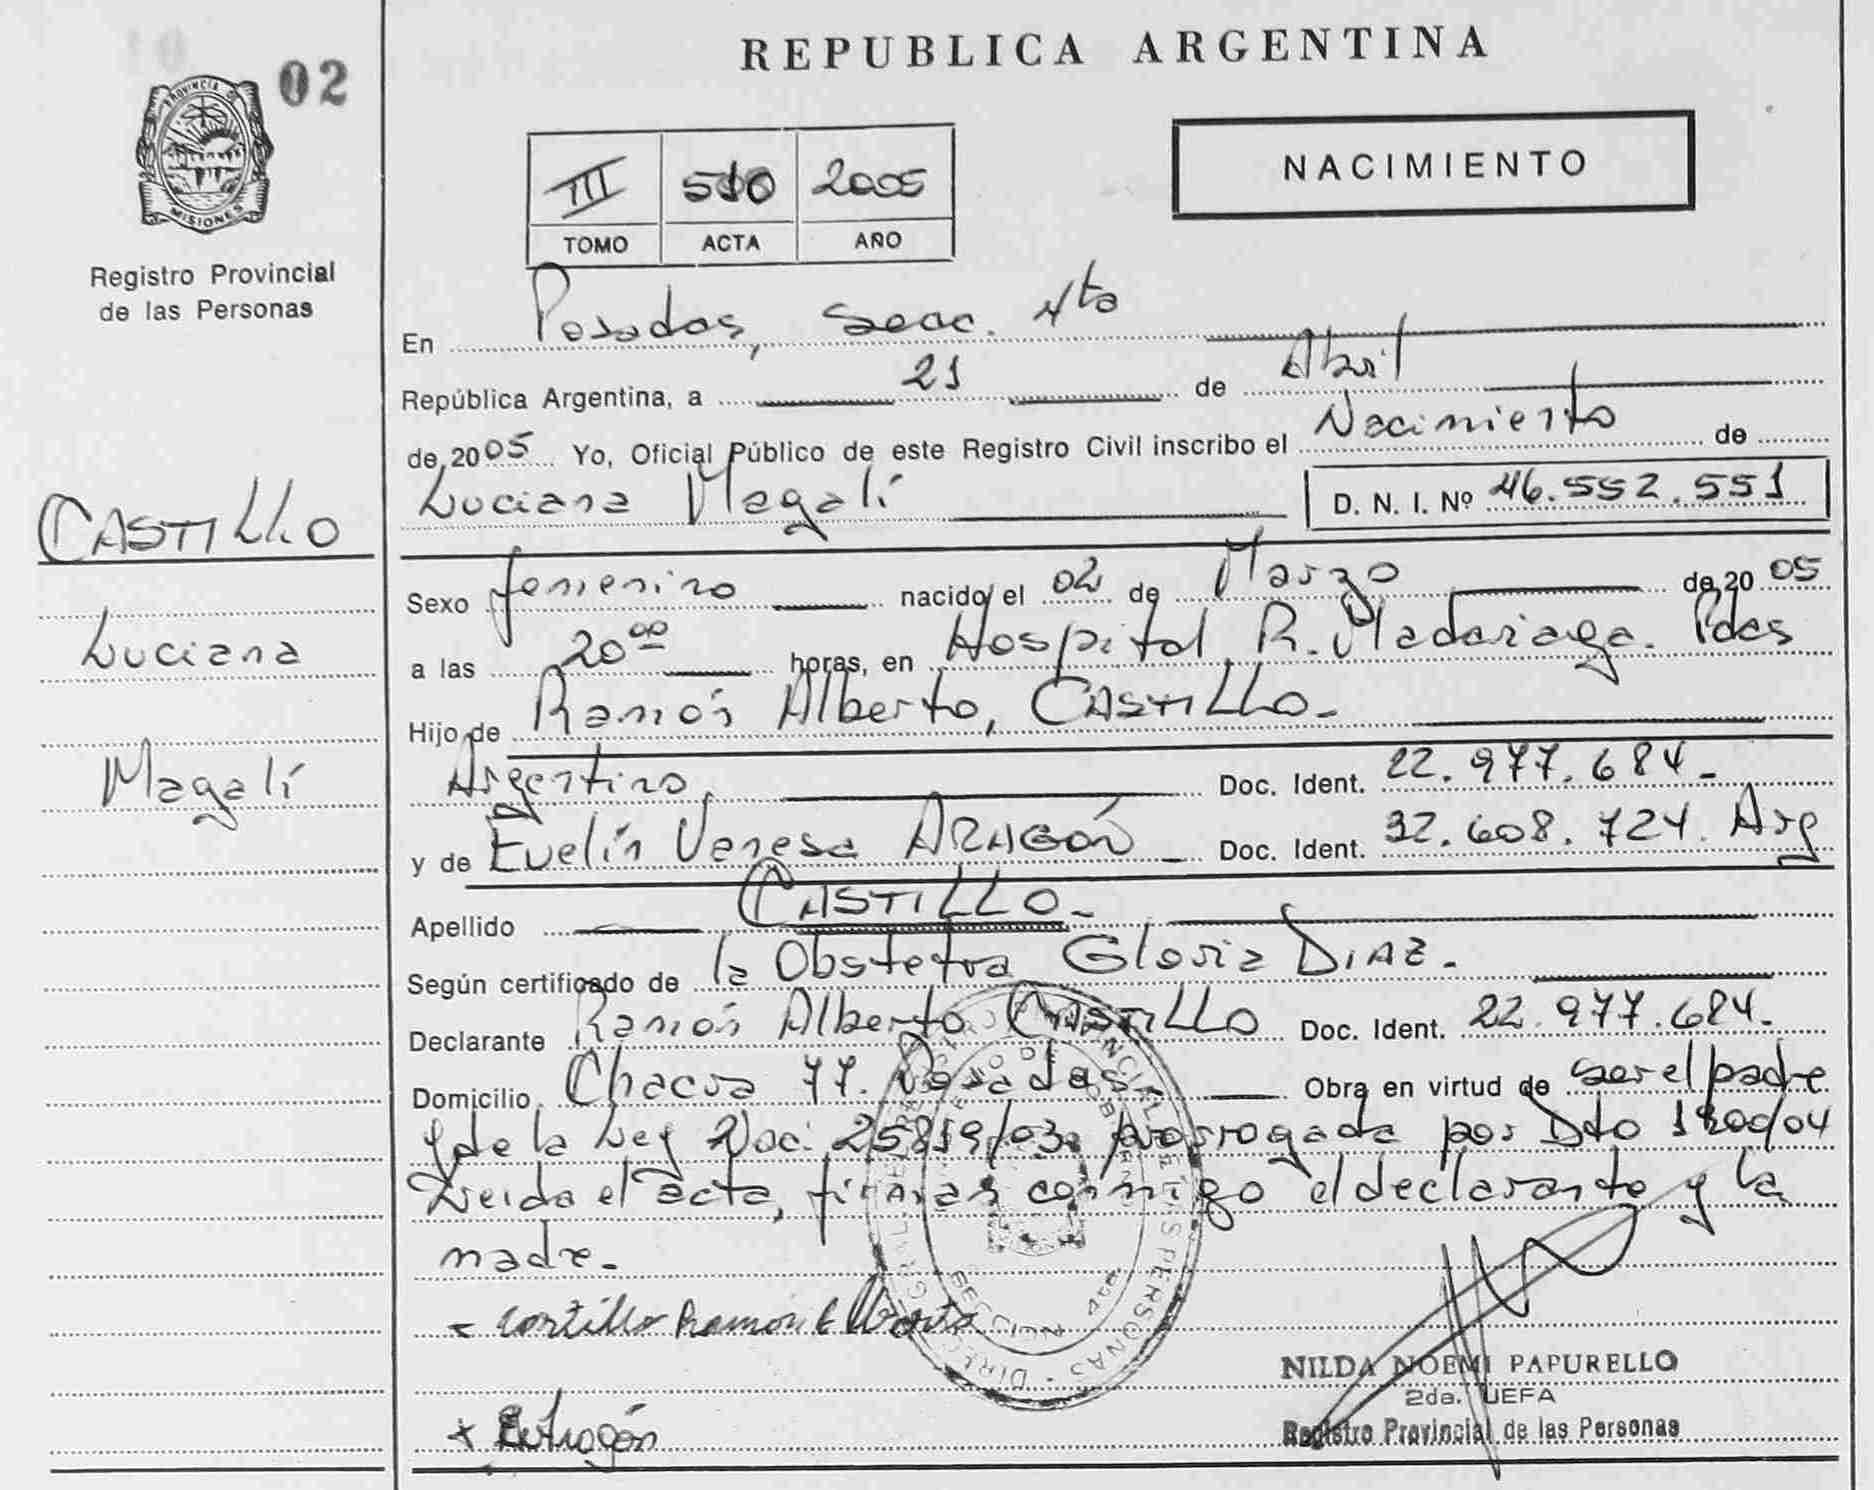 02
PROVINCIA DE
MISIONES
Registro Provincial
de las Personas
CASTILLO
Luciana
Magalí
REPUBLICA ARGENTINA
III 510 2005
TOMO ACTA AÑO
NACIMIENTO
En Posadas, Secc. 4ta
República Argentina, a 21 de Abril
de 2005 Yo, Oficial Público de este Registro Civil inscribo el Nacimiento de
Luciana Magalí D. N. I. Nº 46.552.551
Sexo femenino nacido el 02 de Marzo de 2005
a las 20 00 horas, en Hospital R. Madariaga. Pdas
Hijo de Ramón Alberto, CASTILLO-
Argentino Doc. Ident. 22.977.684-
y de Evelín Vanesa ARAGÓN - Doc. Ident. 32.608.724. Arg
Apellido CASTILLO-
Según certificado de la Obstetra Gloria DIAZ.
Declarante Ramón Alberto CASTILLO Doc. Ident. 22.977.684-
Domicilio Chacra 77. Posadas Obra en virtud de ser el padre
y de la Ley Nac. 25819/03. prorrogada por Dto 1200/04
Leída el acta, firman conmigo el declarante y la
madre.-
- Castillo Ramon Alberto
NILDA NOEMI PAPURELLO
2da. JEFA
Registro Provincial de las Personas